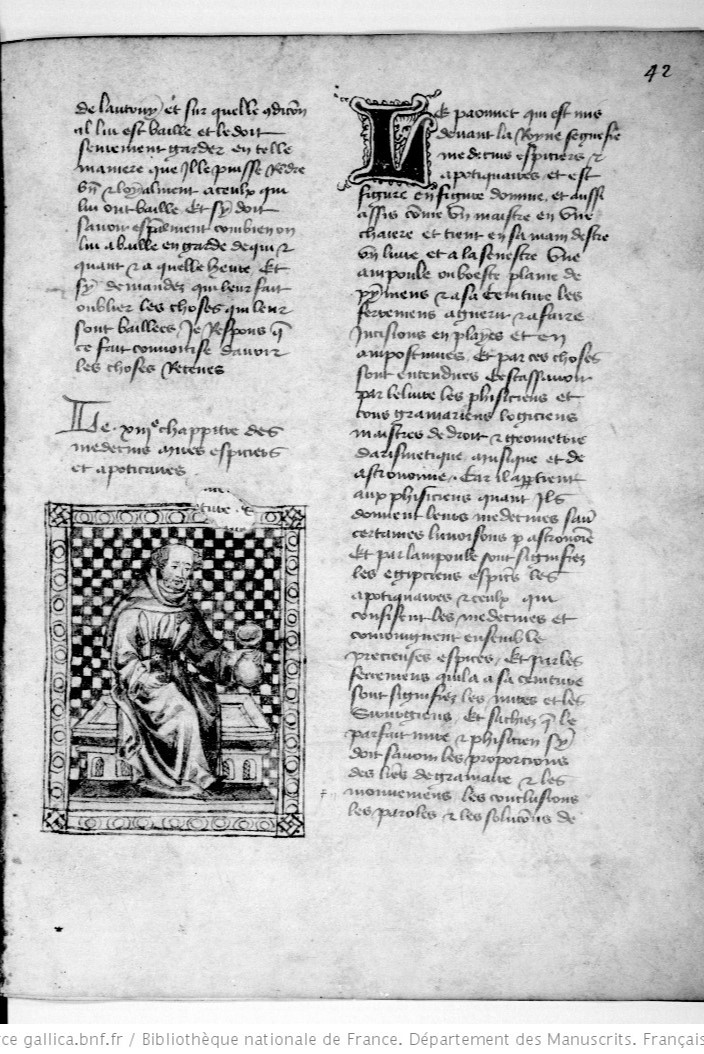 42
de lautony et sur quelle gdicon
Il lui est baille et le doit
seurement garder en telle
maniere que Il le puisse Redre
bn & loyalment a ceulx qui
lui ont baille Et sy doit
savoir espalment combien on
lui a baille en garde de qui &
quant & a quelle heure Et
sy demandez qui leur fait
oublier les choses qui leur
sont baillees Je Respons q
ce fait convoitise davoir
les choses Receues
Le xiiie chappitre des
medecins mires espiciers
et apoticaires
Le paonnet qui est mis
devant la Royne segnefie
medecins espiciers &
apotiquaires et est
figure en figure domme et aussi
assis come vn maistre en vne
chaiere et tient en sa main destre
vn livre et a la senestre vne
ampoule ou boeste plaine de
& a sa ceinture les
ferremens a guerir & a faire
Incisions en playes et en
ampostumes Et par ces choses
sont entendues Cestassavoir
par le livre les phisiciens et
tous gramariens logiciens
maistres de droit & geometrie
darismetique musique et de
astronomie Car il aptient
aux phisiciens quant Ilz
donnent leurs medecines savr
certaines p astronoie
Et par lampoule sont signifiez
les espics les
apotiquaires & ceulx qui
confisent les medecines et
conioingnent ensemble
precieuses espices Et par les
ferremens quil a a sa ceinture
sont signifiez les mires et les
Sirurgiens Et sachiez q le
parfait mire & phisicien sy
doit savoir les proporcions
des lres de gramaire & les
mouvemens les conclusions
les paroles & les solucons de
rce gallica.bnf.fr / Bibliothèque nationale de France. Département des Manuscrits. Français